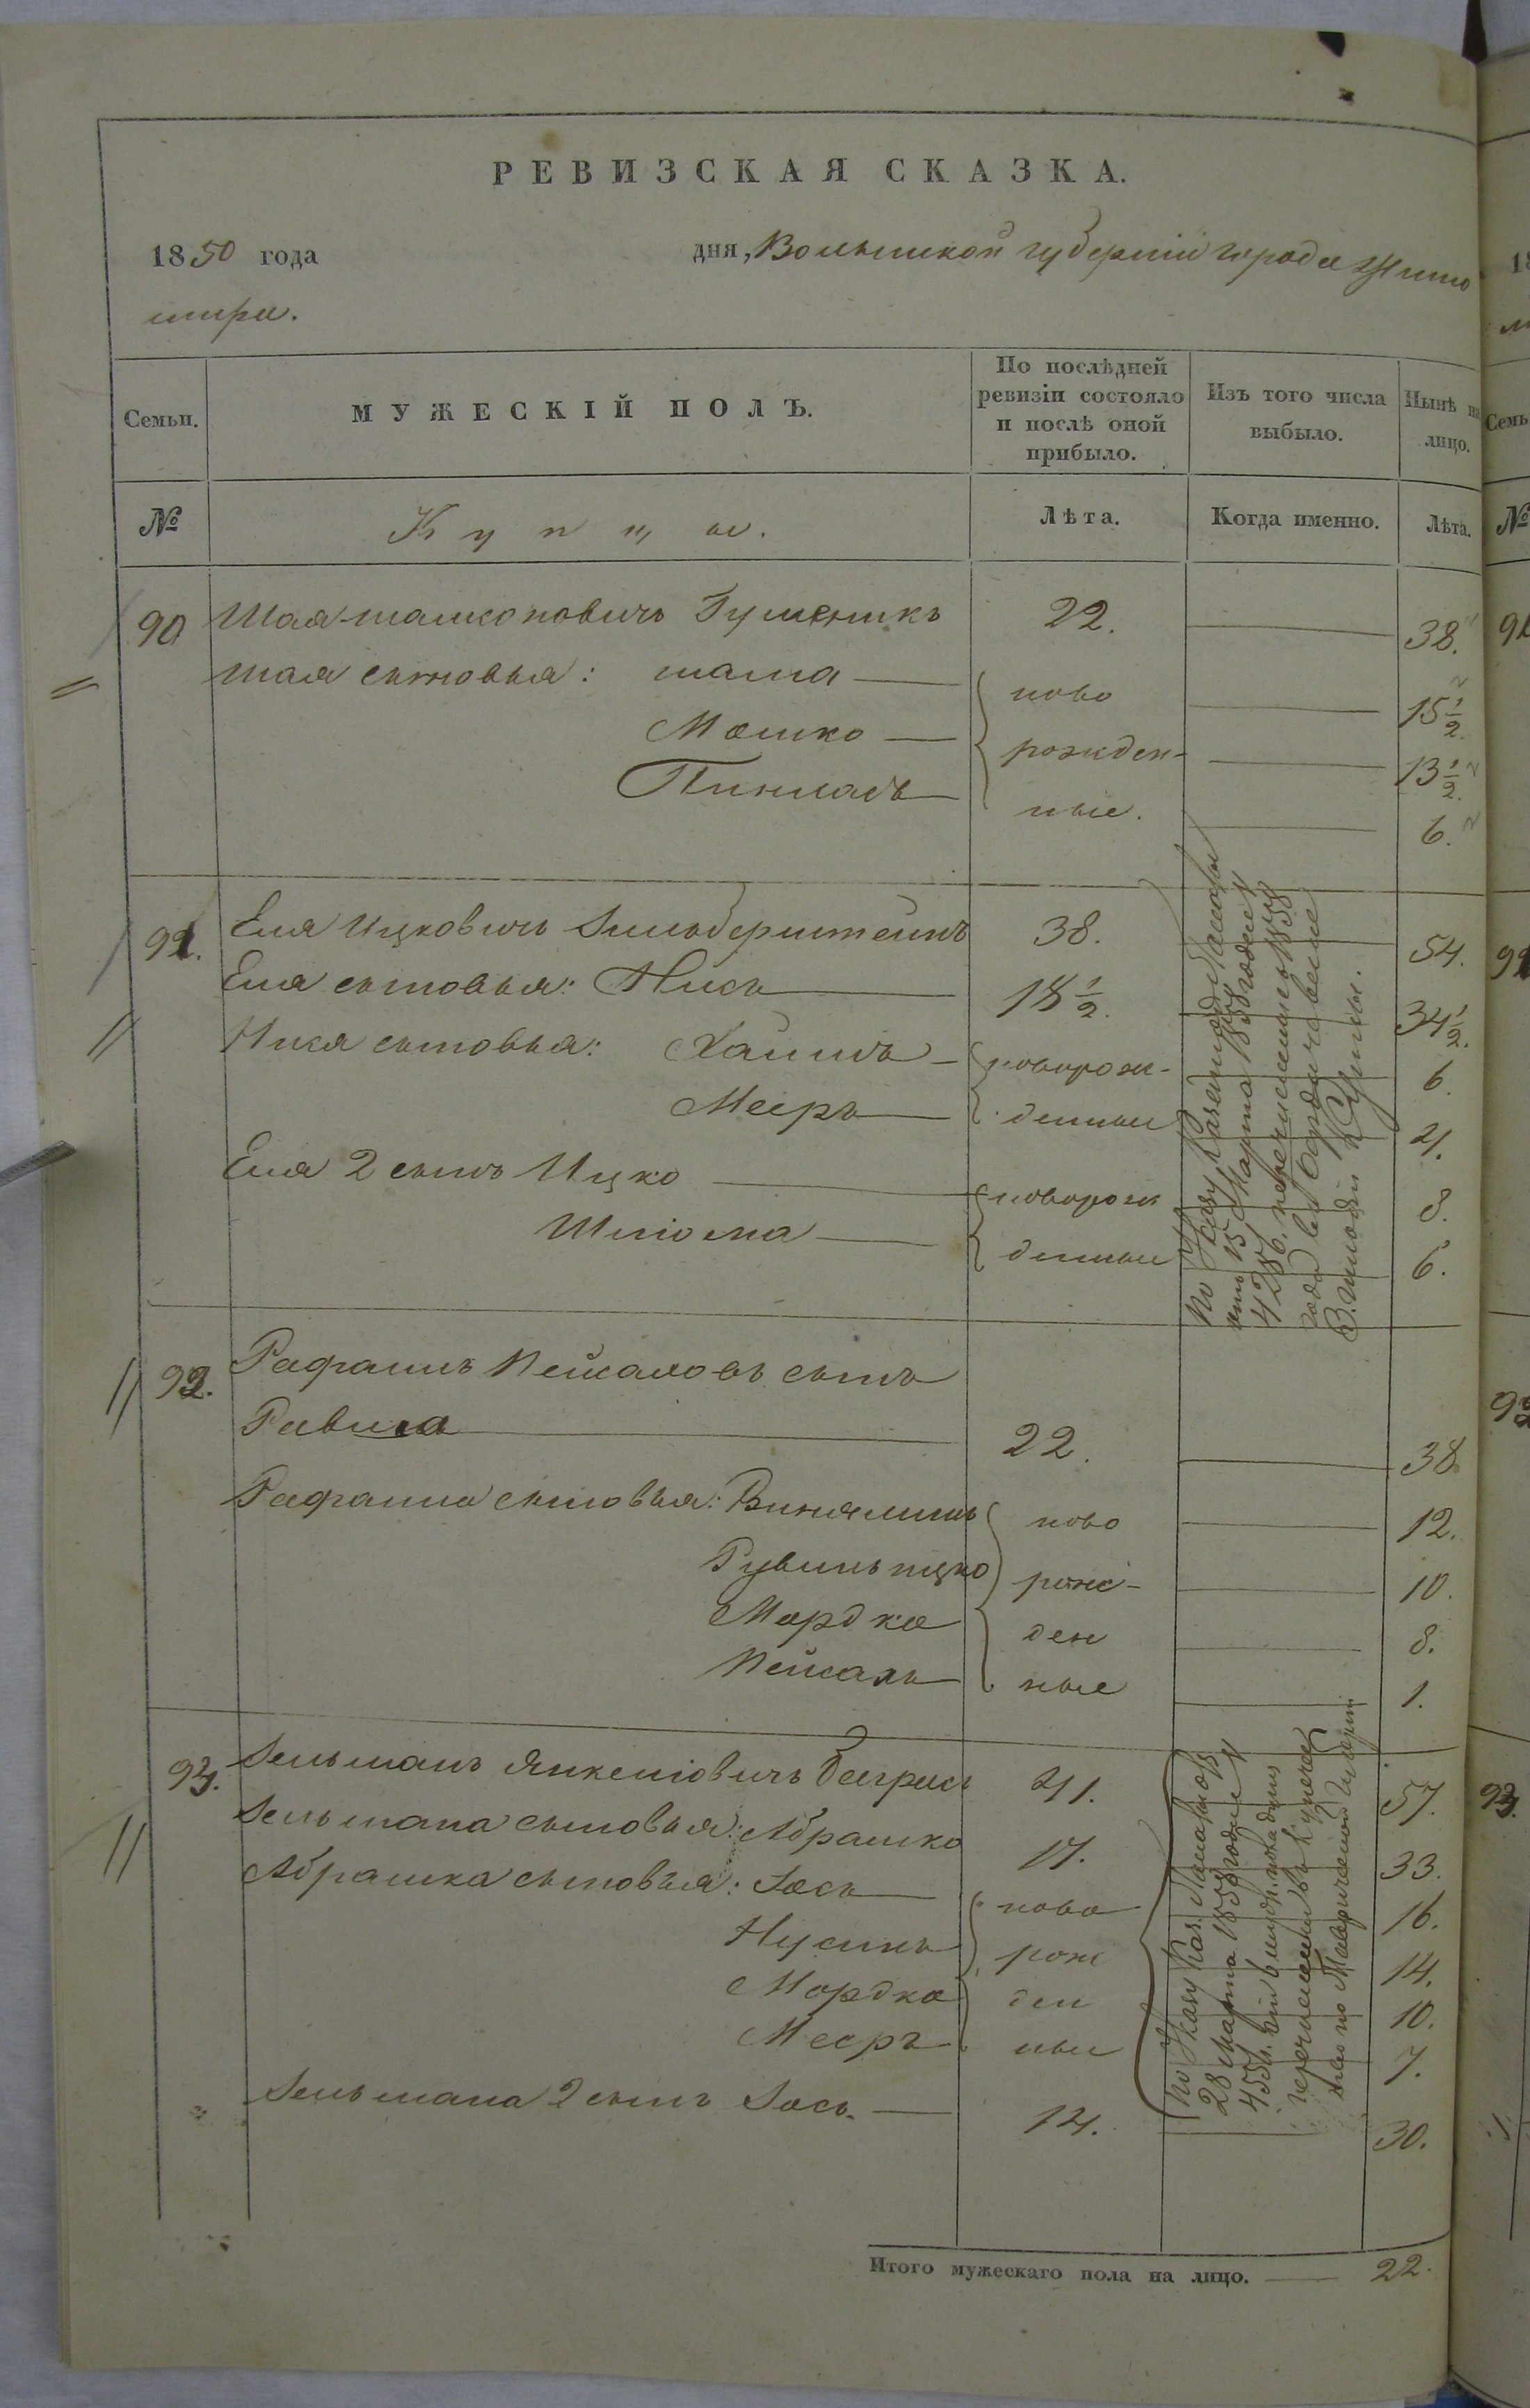 РЕВИЗСКАЯ СКАЗКА.
1850 года дня, Волынской губернии города Жито
мира.
Семьи. МУЖЕСКІЙ ПОЛЪ. По послѣдней ревизіи состояло и послѣ оной прибыло. Изъ того числа выбыло. Нынѣ на лицо.
№ Купцы. Лѣта. Когда именно. Лѣта.
90 Шая 22. 38.
Шая сыновья: шама ново 15½.
Мошко рожден- 13½.
Пинхасъ ные. 6.
91. Еля Ицковичъ Зильберштейнъ 38. 54.
Еля сыновья: Нисъ 18½. 34½.
Ниса сыновья: Хаимъ новорож- 6.
Мееръ денные 4.
Еля 2 сынъ Ицко новорож 8.
Шліома денные 6.
По Указу Казенной Палаты
отъ 15 Марта 1858 года №
4286. перечислены съ 1858
года въ Бердичевские
3. гильдіи Купцы.
92. Рафаилъ Пейсаховъ сынъ
Равича 22. 38
Рафаила сыновья: ново 12.
Рувинъ ицко рож- 10.
Мордко ден 8.
Пейсахъ ные 1.
93. Зельманъ Янкеліовичъ 41. 57.
Зельмана сыновья: Абрашко 17. 33.
Абрашка сыновья: Іось ново 16.
Нусинъ рож 14.
Мордко ден 10.
Мееръ ные 7.
Зельмана 2 сынъ Іось. 14. 30.
По Указу Каз. Палаты отъ
28 Марта 1858 года №
перечислены въ Купече
Итого мужескаго пола на лицо. 22.